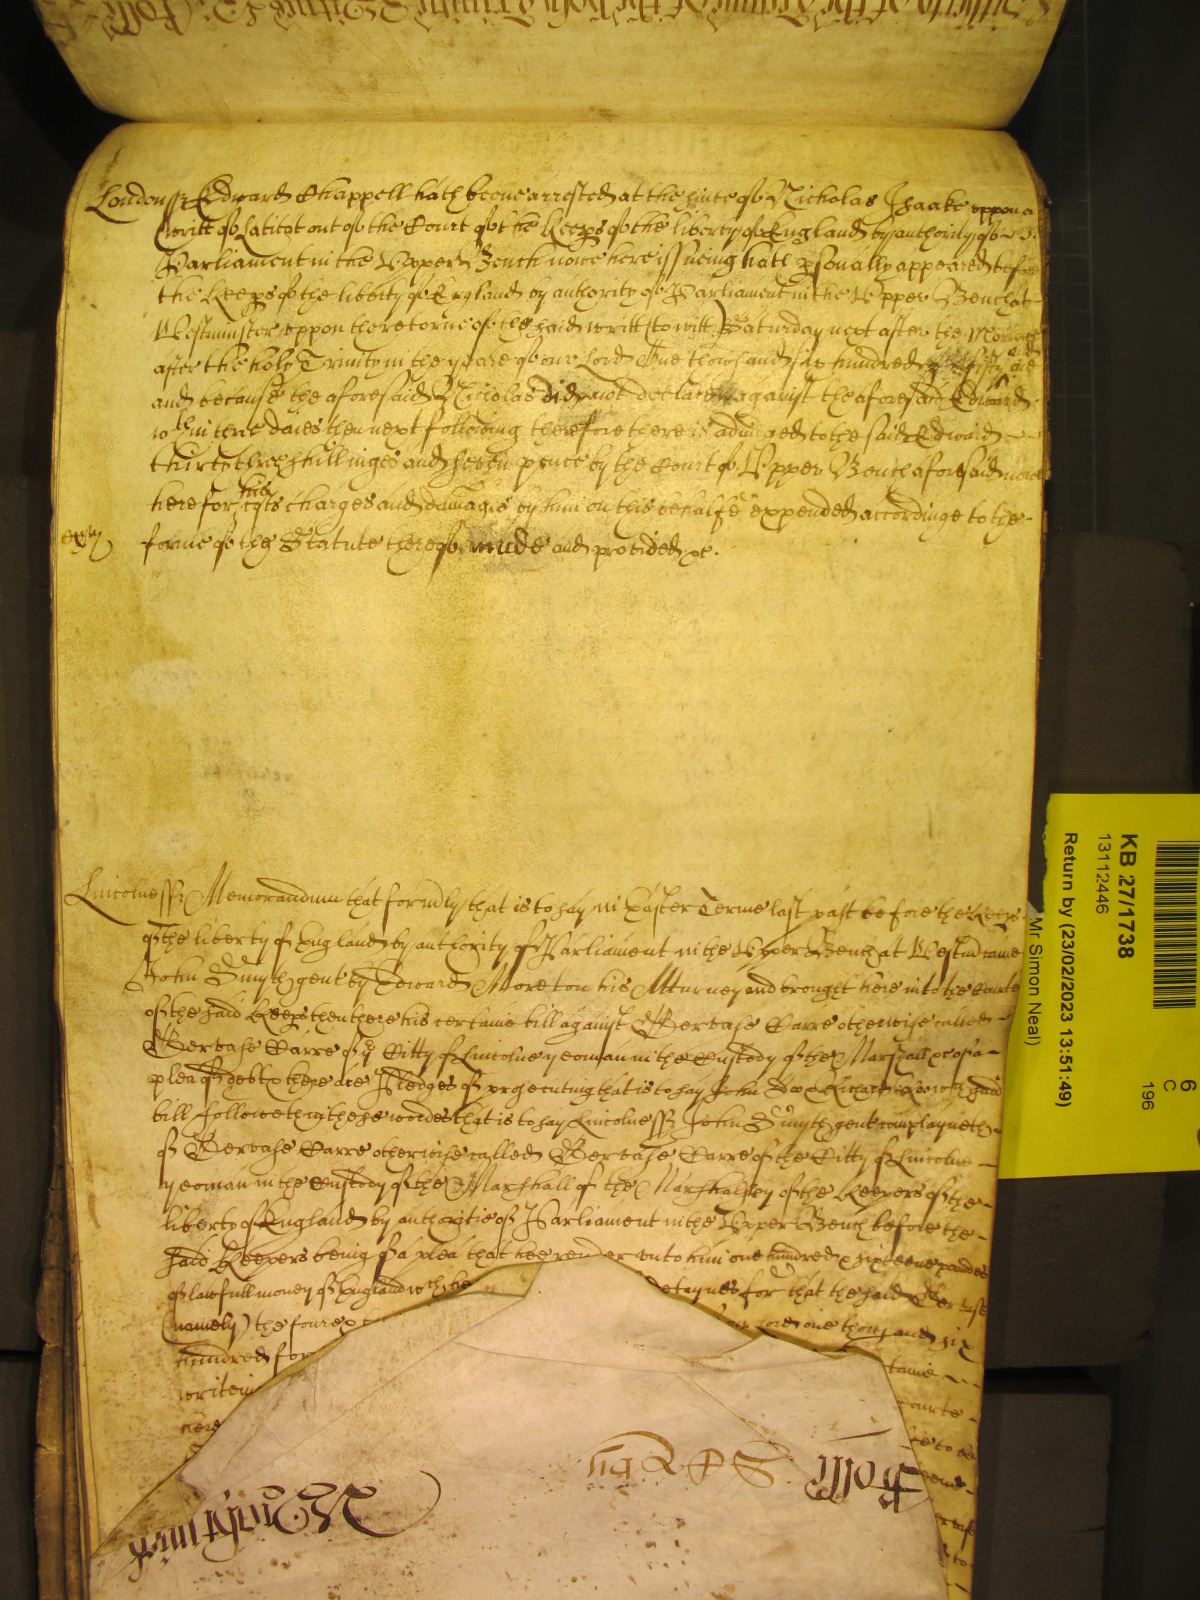 London ss Edward Chappell hath beene arrested at the suite of Nicholas Isaake uppon a
writt of Latitat out of the Court of the Keeps of the liberty of England by authority of
Parliament in the Upper Bench nowe here issueing hath psonally appeared before
the Keeps of the liberty of England by authority of Parliament in the Upper Bench at
Westminster uppon the retorne of the said writt (to witt) Saturday next after the Morrow
after the holy Trinity in the yeare of our Lord One thowsand six hundred fifty and
and because the aforesaid Nicholas did not declare against the aforesaid Edward
wthin three daies then next following therefore there is adiudged to the said Edward
thirty three shillinges and seven pence by the Court of Upper Bench aforesaid nowe
here for his costs charges and damages by him on this behalfe expended accordinge to the
forme of the Statute thereof made and provided &c.
Lincolne ss Memorandum that formerly that is to say in Easter Terme last past before the Keeps
of the liberty of England by authority of Parliament in the Upper Bench at Westm came
John Smyth gent by Edward Moreton his Atturney and brought here into the Courte
of the said Keeps then there his certaine bill against Gervase Carre otherwise called
Gervase Carre of ye Citty of Lincolne yeoman in the Custody of the Marshall &c of a
plea of debt & there are Pledges of prosecuting that is to say John Doe & Richard Roo wch said
bill followeth in these wordes that is to say Lincolne ss John Smyth gent complayneth
of Gervase Carre otherwise called Gervase Carre of the Citty of Lincolne
yeoman in the Custody of the Marshall of the Marshalsey of the Keepers of the
liberty of England by authoritie of Parliament in the Upper Bench before the
said Keepers being of a plea that hee render unto him one hundred & sixteene poundes
of lawfull money of England wch he detaynes for that the said Gervase
(namely) the foure & our Lord one thousand six
hundred for
writeing
here
Rolle
KB 27/1738
13112446
Return by (23/02/2023 13:51:49)
Mr Simon Neal)
6
C
196